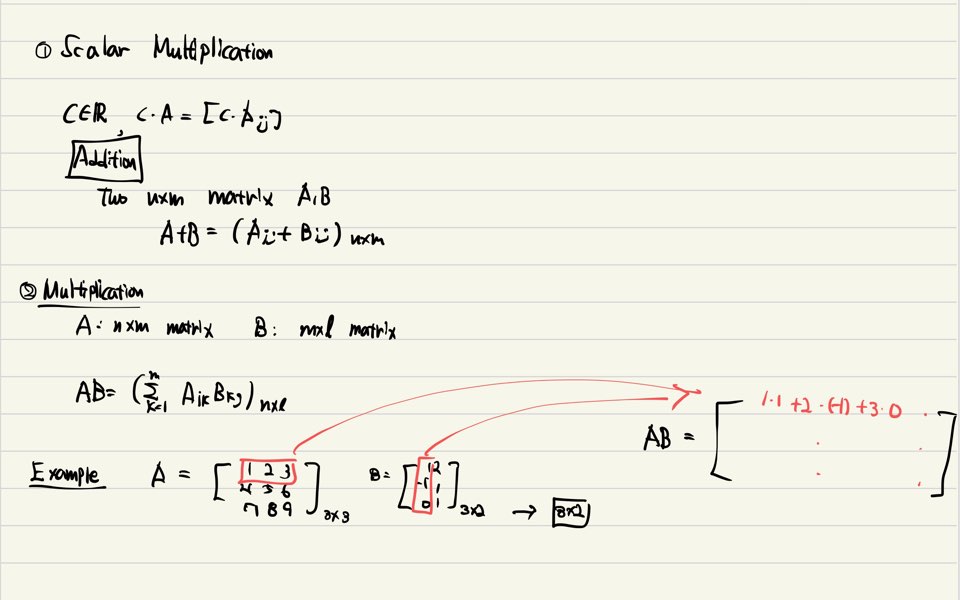 ① Scalar Multiplication
C∈ℝ, c·A = [c·Aij]
Addition
Two nxm matrix A,B
A+B = (Aij + Bij) nxm
② Multiplication
A: nxm matrix B: mxl matrix
AB = (∑_{k=1}^{m} Aik Bkj) nxl
Example A = [1 2 3
4 5 6
7 8 9] 3x3
B = [1 2
-1 1
0 1] 3x2 → 3x2
AB = [1·1 +2·(-1) +3·0 ·
· ·
· ·]